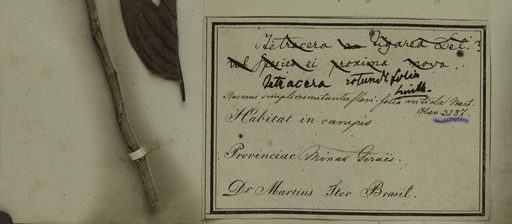 Tetracera an Tigarea Dec.?
vel species ei proxima nova.
Tetracera rotundifolia
Smith.
Racemi simplices nutantes flavi. folia nitida Mart.
Obsv 3287.
Habitat in campis
Provinciae Minas Geraës.
Dr Martius Iter Brasil.